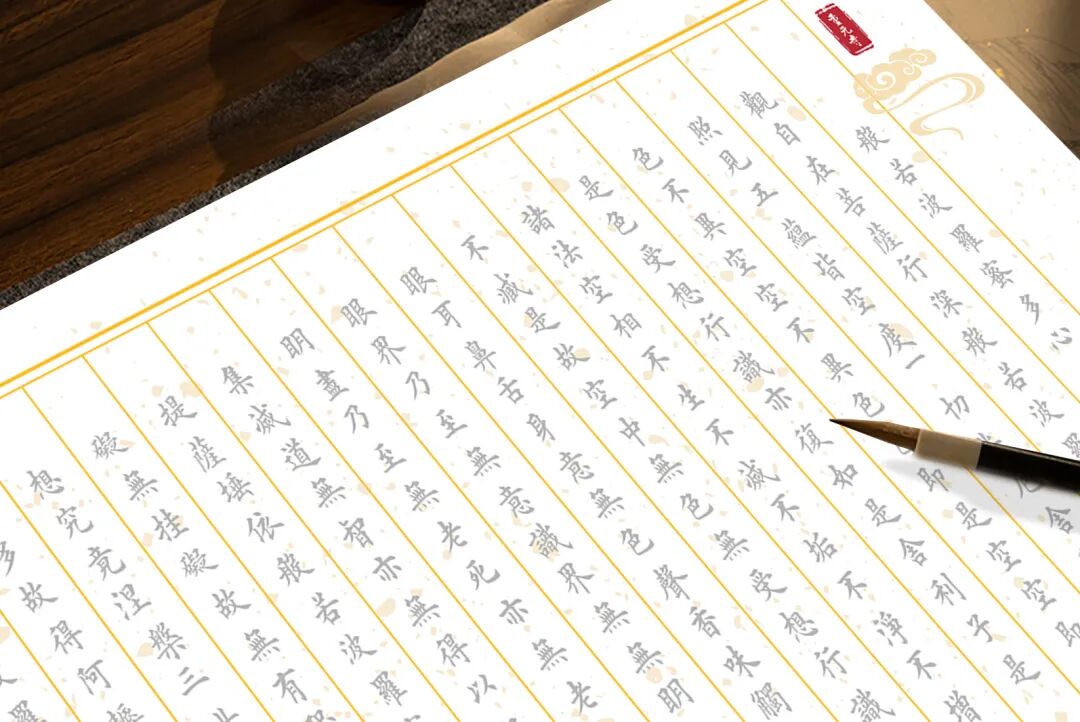 般若波羅蜜多心
觀自在菩薩行深般若波羅
照見五蘊皆空度一切舍
色不異空空不異色即是空空即
是色受想行識亦復如是舍利子是
諸法空相不生不滅不垢不淨不增
不減是故空中無色無受想行識
眼耳鼻舌身意無色聲香味觸
眼界乃至無意識界無無明
明盡乃至無老死亦無老
集滅道無智亦無得以
提薩埵依般若波羅
礙無挂礙故無有
想究竟涅槃三
多故得阿